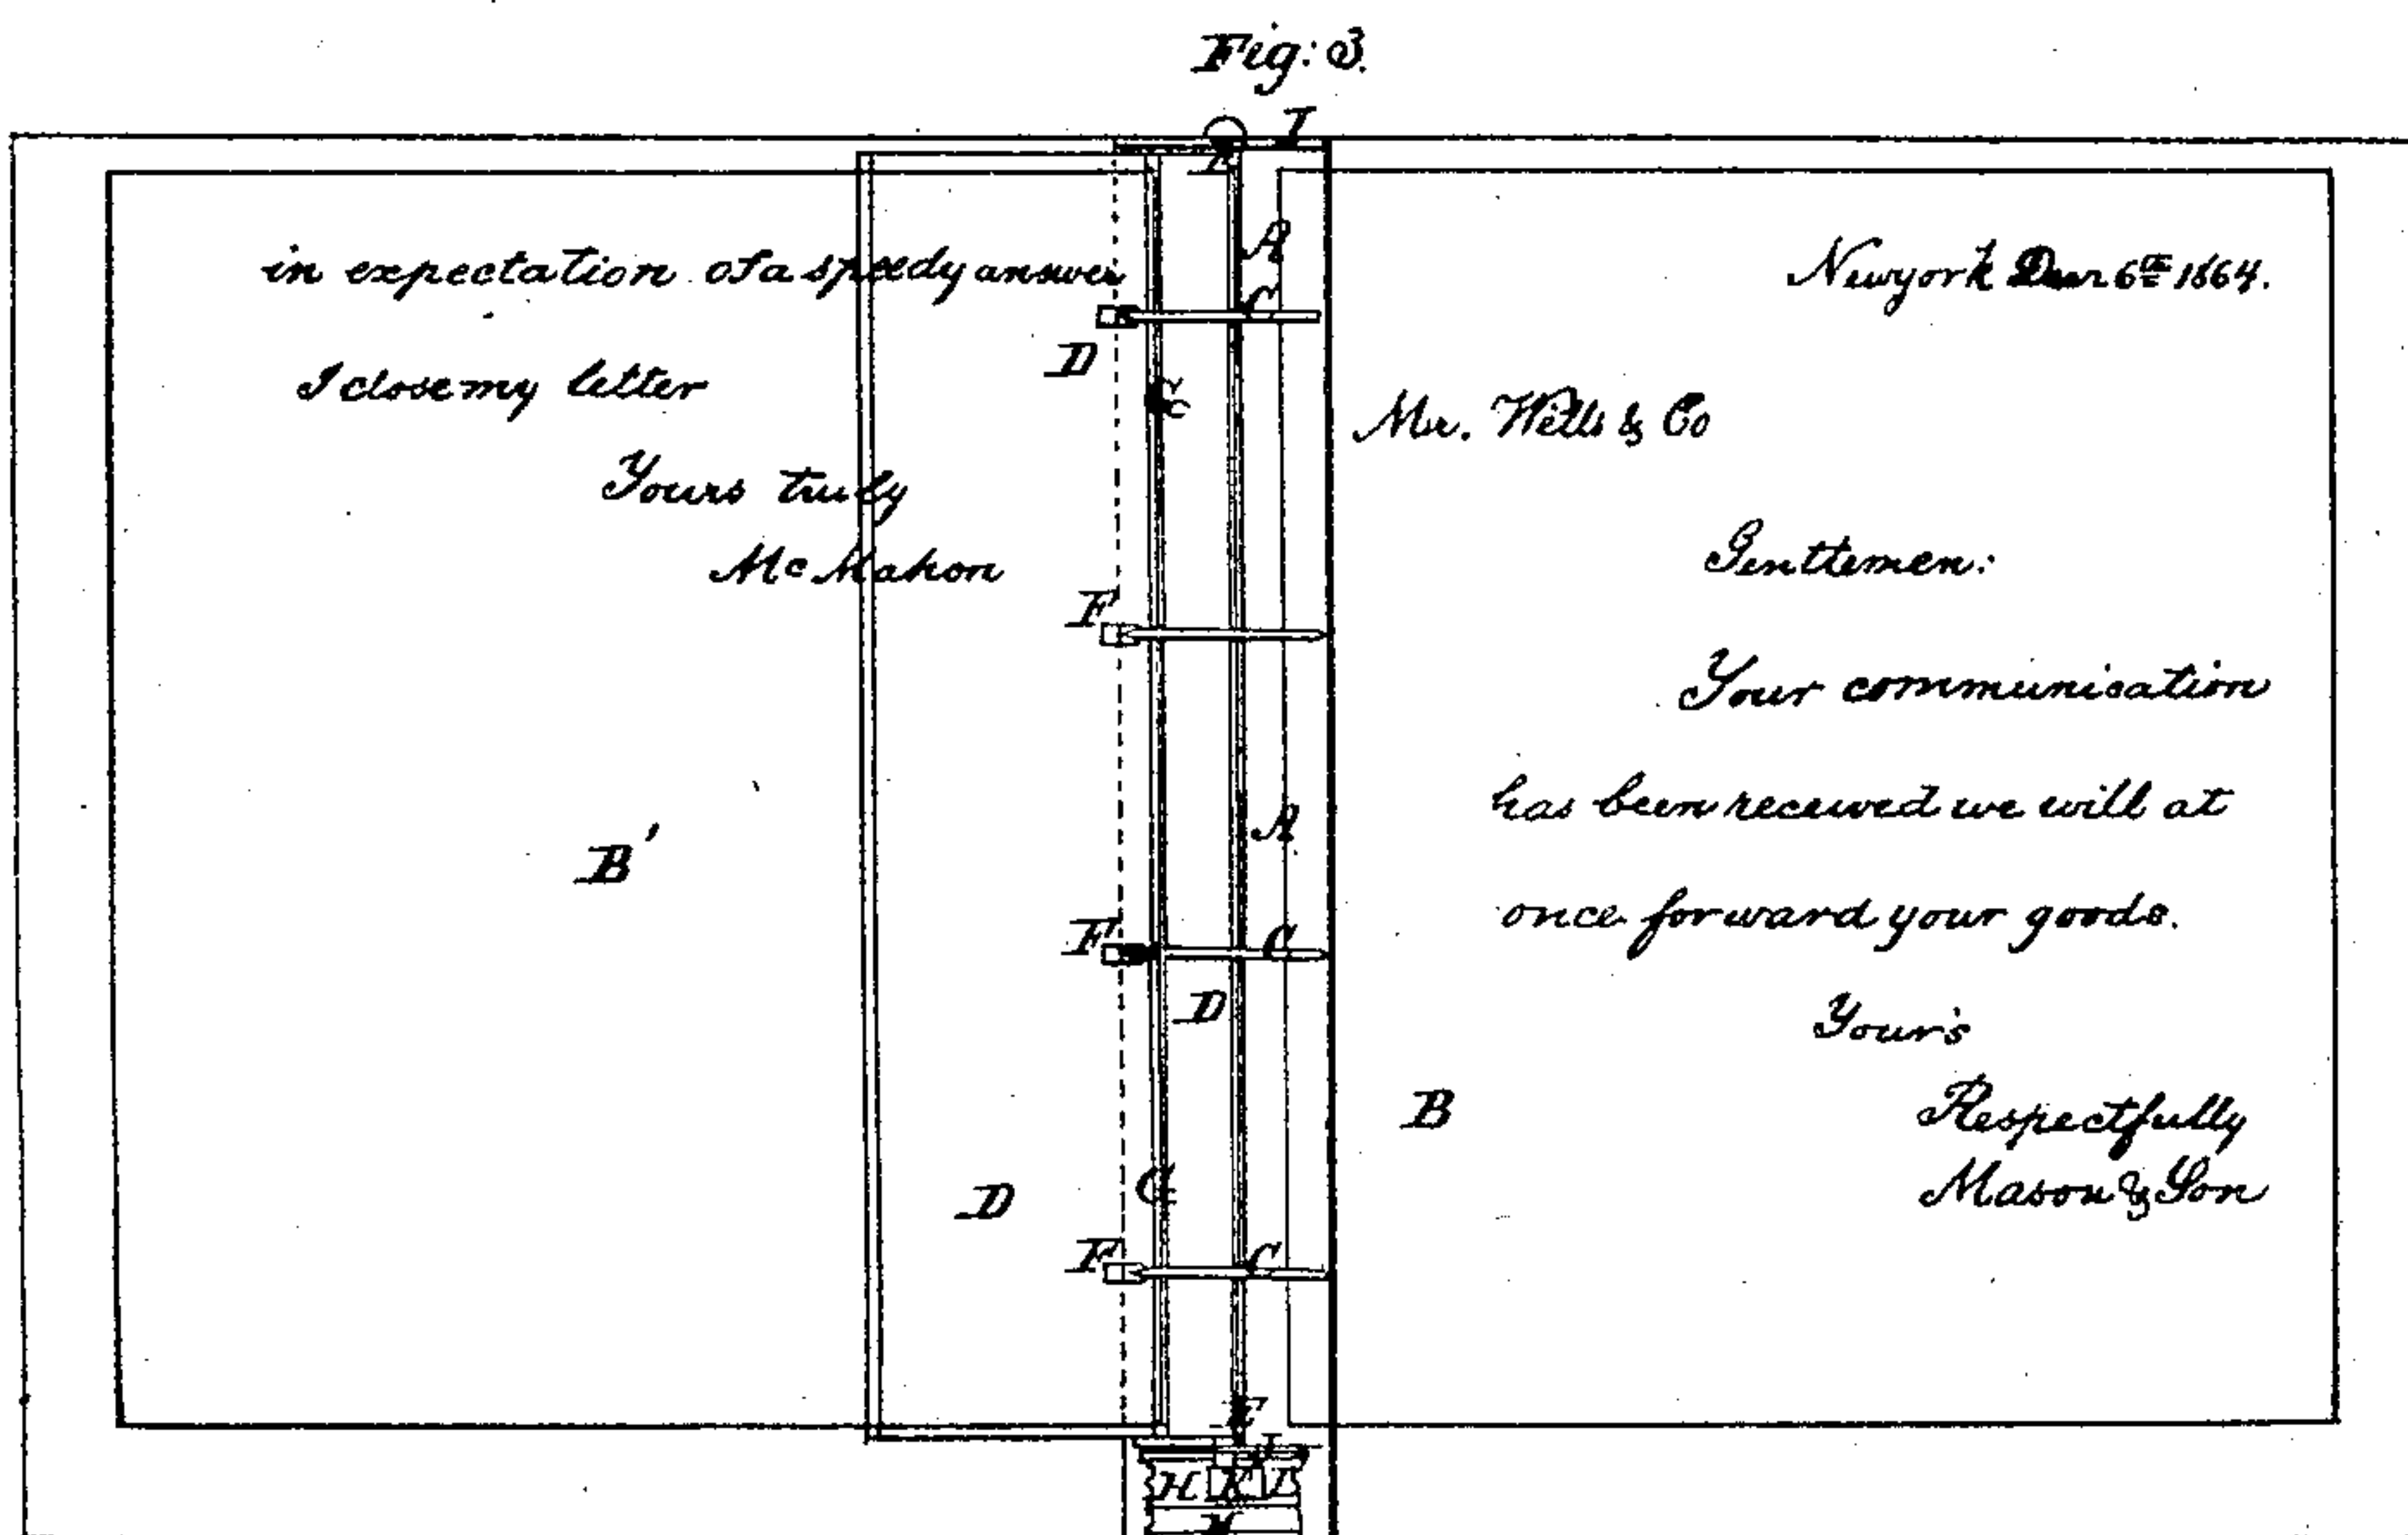 Fig: 3.
I
A
in expectation of a speedy answer
I close my letter
Yours truly
Mc Mahon
C
D
F
B'
F
A
C
D
D
G
F
C
E
H
Newyork 6th 1864.
Mr. Wells & Co
Gentlemen:
Your communication
has been received we will at
once forward your goods.
Your's
Respectfully
Mason & Son
B